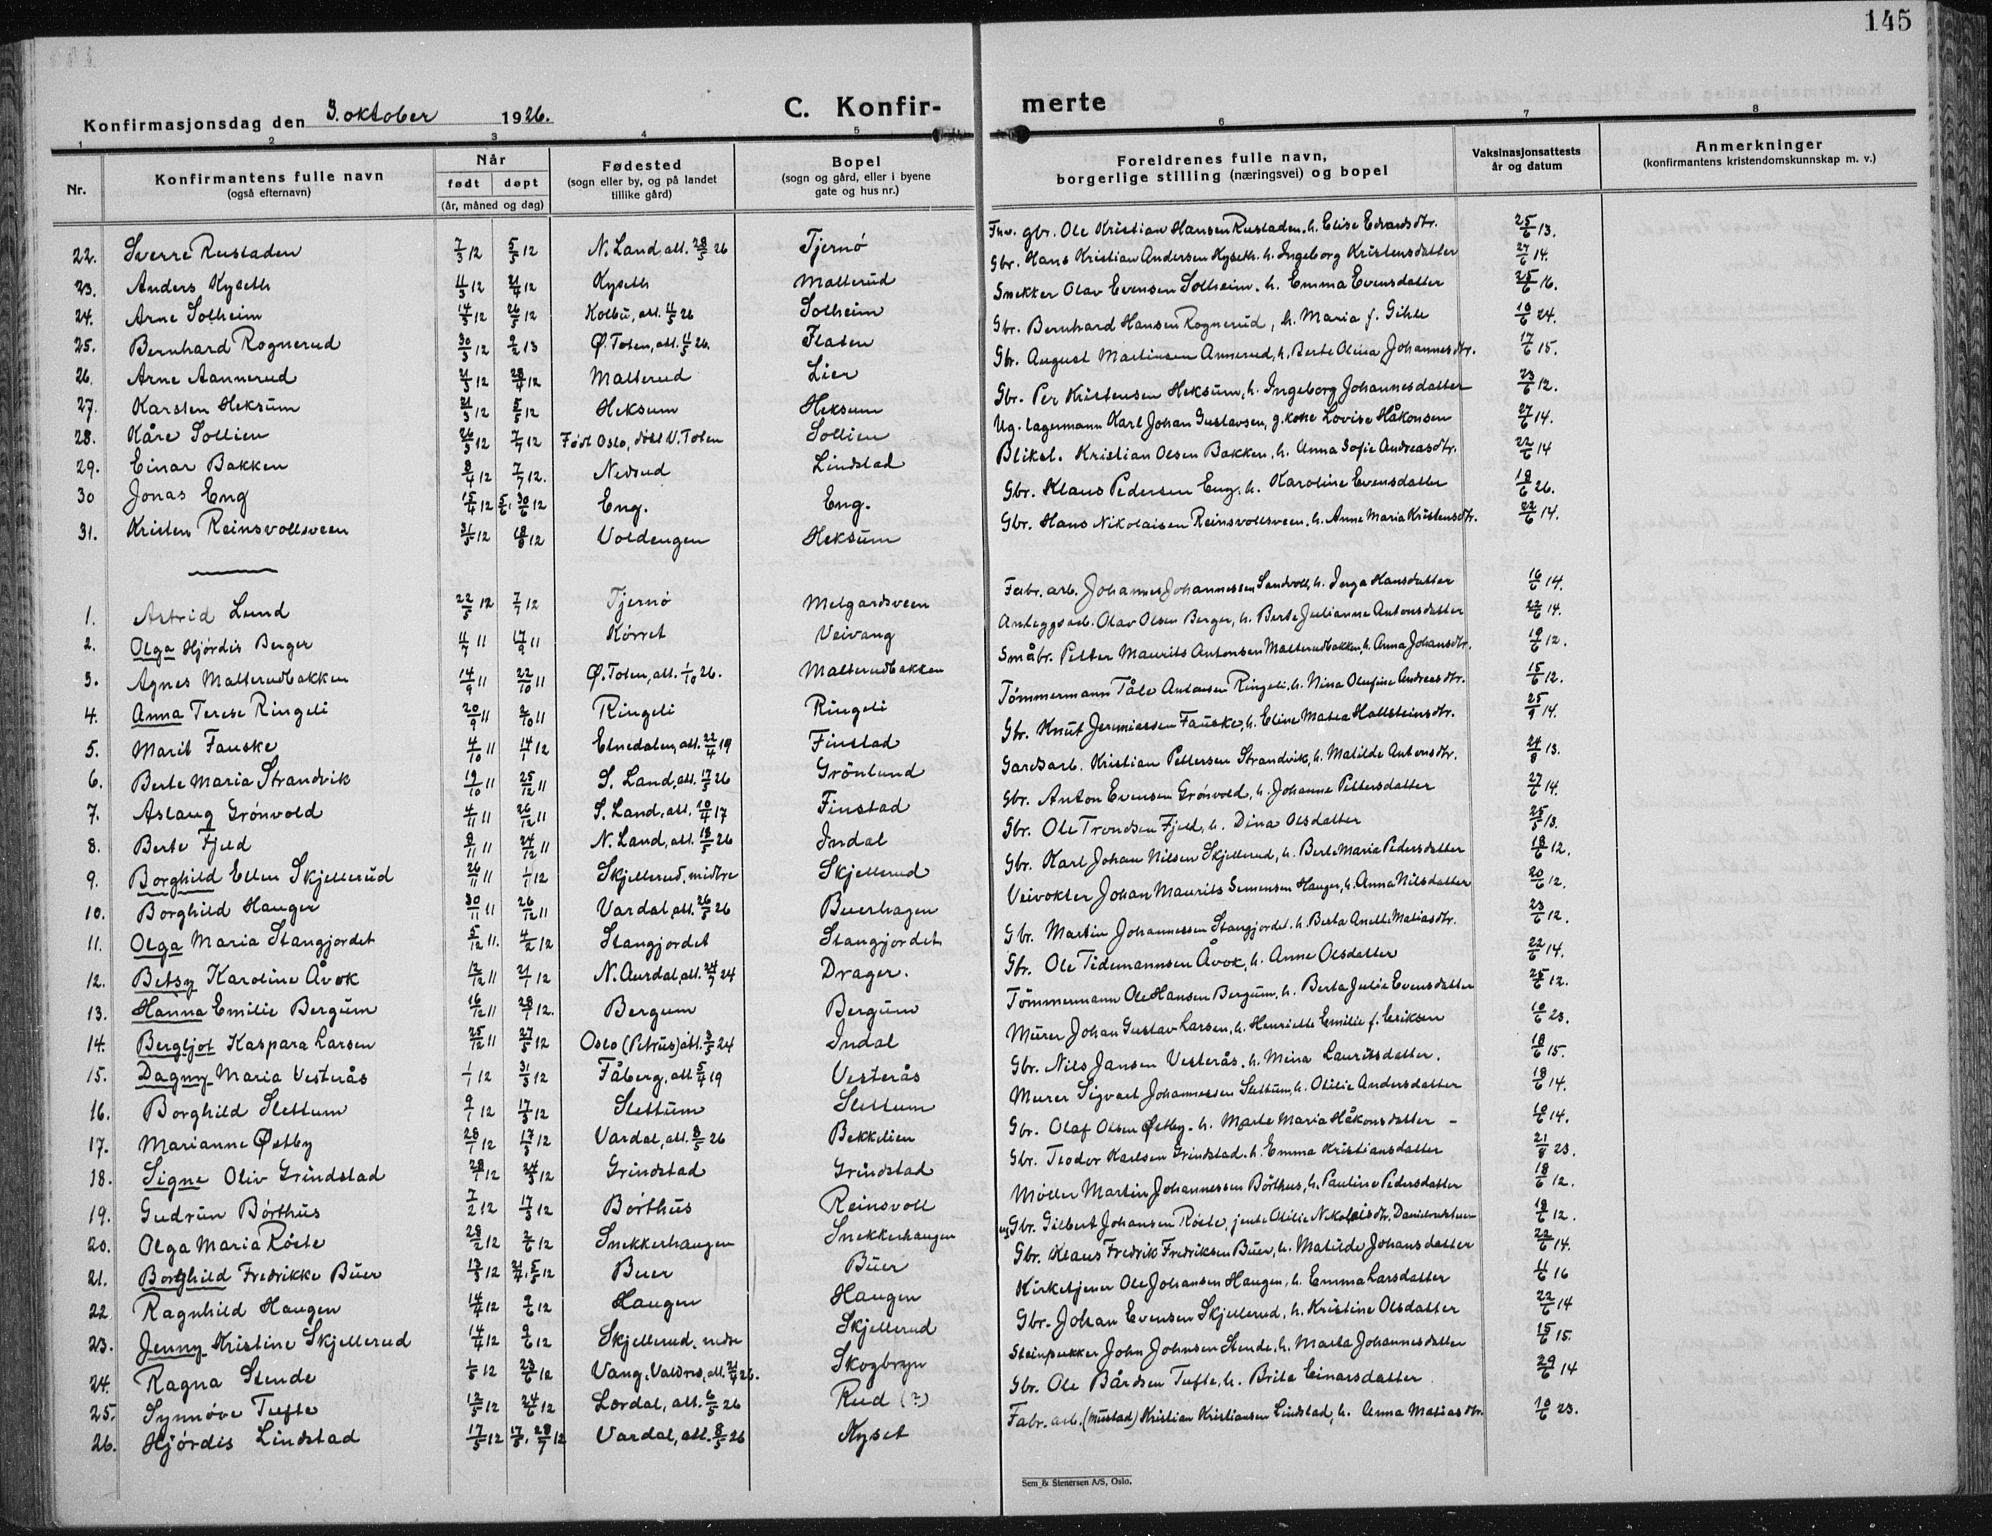 145
Konfirmasjonsdag den 3. oktober 1926.
C. Konfir- merte
1 2 3 4 5 6 7 8
Nr.
Konfirmantens fulle navn (også efternavn)
Når født døpt (år, måned og dag)
Fødested (sogn eller by, og på landet tillike gård)
Bopel (sogn og gård, eller i byene gate og hus nr.)
Foreldrenes fulle navn, borgerlige stilling (næringsvei) og bopel
Vaksinasjonsattests år og datum
Anmerkninger (konfirmantens kristendomskunnskap m. v.)
22. Sverre Rustaden 7/3 12 5/5 12 N. Land, att. 28/5 26 Tjernö gbr. Ole Kristian Hansen Rustaden, h. Elise Edvardsdtr. 25/6 13.
23. Anders Kyseth 11/3 12 21/4 12 Kyseth Malterud Gbr. Hans Kristian Andersen Kyseth. h. Ingeborg Kristensdatter 27/6 14.
24. Arne Solheim 14/3 12 26/5 12 Kolbu, att. 11/5 26 Solheim Snekker Olav Evensen Solheim. h. Emma Evensdatter 25/6 16.
25. Bernhard Rognerud 30/3 12 9/2 13 Ø. Toten, att. 11/5 26. Flaten Gbr. Bernhard Hansen Rognerud, h. Maria f. Gihle 10/6 24.
26. Arne Aannerud 21/3 12 28/4 12 Malterud Lier Gbr. August Martinsen Annerud, h. Berte Olina Johannesdtr. 17/6 15.
27. Karsten Heksum 21/3 12 5/5 12 Heksum Heksum Gbr. Per Kristensen Heksum, h. Ingeborg Johannesdatter 23/6 12.
28. Kåre Sollien 26/3 12 7/7 12 Født Oslo, døbt V. Toten Sollien Ug. lagermann Karl Johan Gustavsen, g. kone Lovise Håkonsen 27/6 14.
29. Einar Bakken 8/4 12 7/7 12. Nedrud Lindstad Bliksl. Kristian Olsen Bakken, h. Anna Sofie Andreasdtr. 22/6 14
30 Jonas Eng 15/4 12 30/6 12 Eng. Eng. Gbr. Klaus Pedersen Eng, h. Karoline Evensdatter 18/6 26.
31. Kristen Reinsvollsveen 31/5 12 18/8 12 Voldengen Heksum Gbr. Hans Nikolaisen Reinsvollsveen, h. Anne Maria Kristensdtr. 22/6 14.
1. Astrid Lund 22/5 12 7/7 12 Tjernö Melgardsveen Fabr. arb. Johannes Johannessen Sandvoll, h. Inga Hansdatter 16/6 14.
2. Olga Hjördis Berger 11/7 11 17/9 11 Körret Veivang Anleggsarb. Olav Olsen Berger, h. Berte Julianne Antonsdatter 22/6 14.
3. Agnes Malterudbakken 14/9 11 22/10 11 Ø. Toten, att. 1/10 26. Malterudbakken Småbr. Petter Maurits Antonsen Malterudbakken, h. Anna Johansdtr. 19/6 12.
4. Anna Terese Ringeli 20/9 11 8/10 11 Ringeli Ringeli Tömmermann Tåle Antonsen Ringeli, h. Nina Olufine Andreasdtr. 15/6 12.
5. Marit Fauske 4/10 11 14/1 12 Etnedalen, att. 22/4 19 Finstad Gbr. Knut Jermiessen Fauske, h. Eline Matea Hallsteinsdtr. 25/9 14.
6. Berte Maria Strandvik 19/10 11 25/12 11 S. Land, att. 17/5 26 Grönlund Gardsarb. Kristian Pettersen Strandvik, h. Matilde Antonsdtr. 24/8 13.
7. Aslaug Grönvold 4/11 11 26/12 11 S. Land, att. 10/4 17 Finstad Gbr. Anton Evensen Grönvold, h. Johanne Pettersdatter 27/6 14.
8. Berte Fjeld 8/11 11 24/12 11 N. Land, att. 18/5 26 Indal Gbr. Ole Trondsen Fjeld, h. Dina Olsdatter 25/5 13.
9. Borghild Ellen Skjellerud 26/11 11 1/1 12 Skjellerud, midtre Skjellerud Gbr. Karl Johan Nilsen Skjellerud, h. Berte Maria Pedersdatter 18/6 12.
10. Borghild Hauger 30/11 11 26/12 11 Vardal, att. 26/5 26 Buerhagen Veivokter Johan Maurits Simensen Hauger, h. Anna Nilsdatter 20/6 12.
11. Olga Maria Stangjordet 5/12 11. 4/2 12 Stangjordet Stangjordet Gbr. Martin Johannessen Stangjordet. h. Berta Anette Matiasdtr. 23/6 12.
12. Betsy Karoline Åvok 12/12 11 21/1 12 N. Aurdal, att. 24/7 24 Drager. Gbr. Ole Tidemannsen Åvok, h. Anne Olsdatter 22/6 14.
13. Hanna Emilie Bergum 16/12 11 28/1 12. Bergum Bergum Tömmermann Ole Hansen Bergum, h. Berta Julie Evensdatter 25/6 12.
14. Bergljot Kaspara Larsen 25/12 11 27/5 12 Oslo (Petrus) att. 3/5 24 Indal Murer Johan Gustav Larsen, h. Henriette Emilie f. Eriksen 10/6 23.
15. Dagny Maria Vesterås 1/1 12 31/3 12 Fåberg, att 5/4 19 Vesterås Gbr. Nils Jansen Vesterås. h. Mina Lauritsdatter. 18/6 15.
16. Borghild Slettum 9/1 12 17/3 12 Slettum Slettum Murer Sigvart Johannessen Slettum, h. Otilie Andersdatter 18/6 14.
17. Marianne Østby 28/1 12 17/3 12 Vardal, att. 8/5 26 Bekkelien Gbr. Olaf Olsen Østby. h. Marte Maria Håkonsdatter - 10/6 14.
18. Signe Oliv Grindstad 28/1 12 24/3 12 Grindstad Grindstad Gbr. Teodor Karlsen Grindstad. h. Emma Kristiansdatter 21/8 23.
19. Gudrun Börthus 7/2 12 17/3 12 Börthus Reinsvoll Möller Martin Johannessen Börthus, h. Pauline Pedersdatter 18/6 12.
20. Olga Maria Röste 28/2 12 2/6 12 Snekkerhaugen Snekkerhaugen Gbr. Gilbert Johansen Röste, jente Otilie Nikolaisdtr. 18/6 12.
21. Borghild Fredrikke Buer 13/3 12 21/4, 5/5 12 Buer Buer Gbr. Klaus Fredrik Fredriksen Buer, h. Matilde Johansdatter 22/6 14.
22 Ragnhild Haugen 14/4 12 9/6 12 Haugen Haugen Kirketjener Ole Johansen Haugen, h. Emma Larsdatter 11/6 16
23. Jenny Kristine Skjellerud 14/4 12 9/6 12 Skjellerud, nedre Skjellerud Gbr. Johan Evensen Skjellerud, h. Kristine Olsdatter 22/6 14
24. Ragna Stende 1/5 12 23/6 12 Vang, Valdres, att. 21/4 26. Skogbryn Steinpukker John Johnsen Stende, h. Marta Johannesdatter 15/6 15.
25. Synnöve Tufte 12/5 12 24/6 12 Lærdal, att. 6/5 26 Rud (?) Gbr. Ole Bårdsen Tufte, h. Brita Einarsdatter 29/6 14
26. Hjördis Lindstad 17/5 12 17/5, 28/7 12 Vardal, att. 8/5 26 Kyset Fabr. arb. (Mustad) Kristian Kristiansen Lindstad, h. Anna Matiasdtr. 10/6 23.
Sem & Stenersen A/S, Oslo.